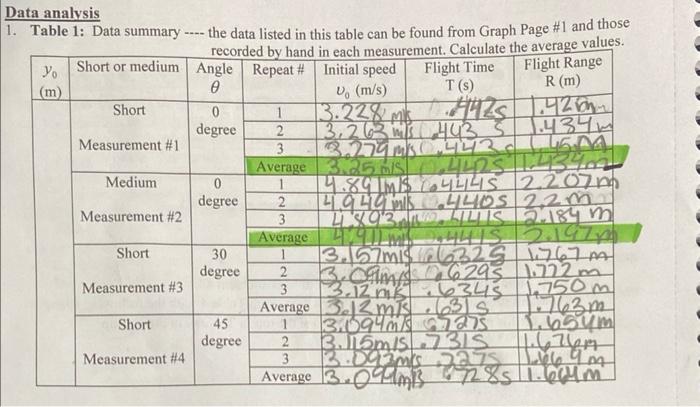 Data analysis
1. Table 1: Data summary ---- the data listed in this table can be found from Graph Page #1 and those
recorded by hand in each measurement. Calculate the average values.
y₀ (m) Short or medium Angle θ Repeat # Initial speed υ₀ (m/s) Flight Time T (s) Flight Range R (m)
Short 0 degree 1 3.228 m/s .442s 1.42m
2 3.263 m/s .443 s 1.434m
Measurement #1 3 3.279 m/s .443s 1.45m
Average 3.25 m/s 0.442s 1.434m
Medium 0 degree 1 4.891m/s .444s 2.207m
2 4.949m/s .440s 2.2m
Measurement #2 3 4.893m/s .441s 2.184 m
Average 4.911 m/s .441s 2.197m
Short 30 degree 1 3.157m/s .632s 1.767 m
2 .629s 1.772m
Measurement #3 3 3.12 m/s .634s 1.750m
Average 3.12m/s .631s 1.763m
Short 45 degree 1 3.094m/s .727s 1.654m
2 3.115m/s .731s 1.676m
Measurement #4 3 3.093m/s .727s 1.669m
Average .728s 1.664m